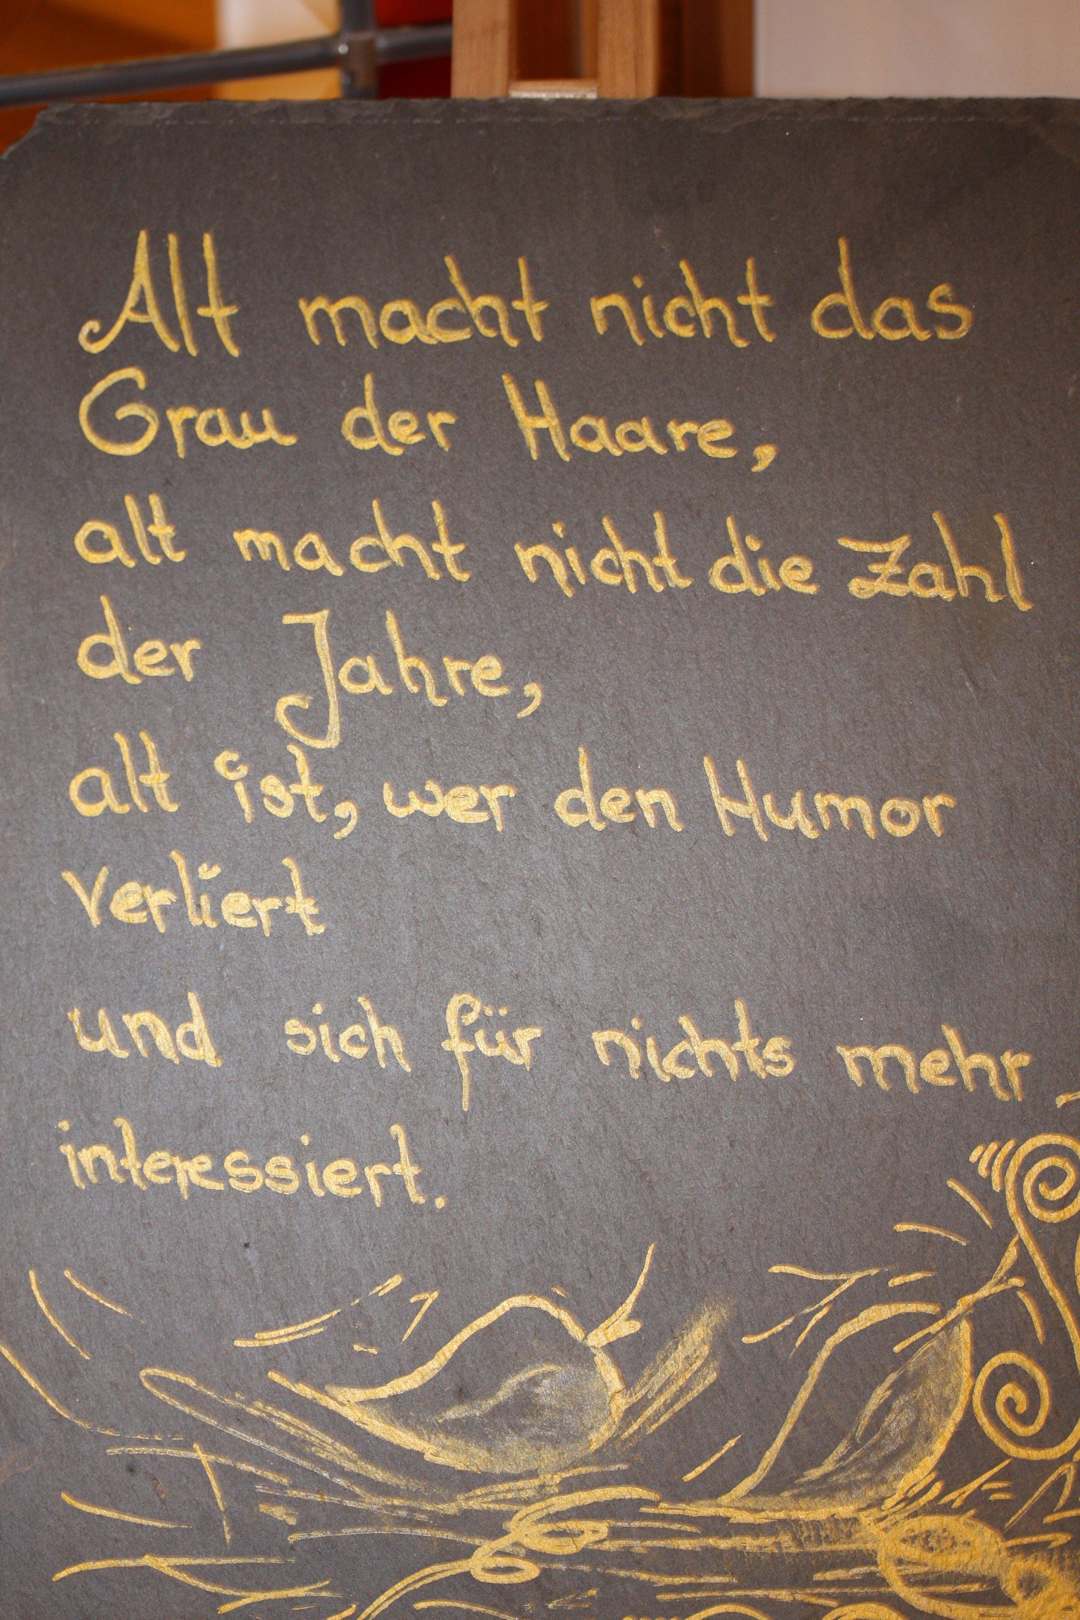 Alt macht nicht das
Grau der Haare,
alt macht nicht die Zahl
der Jahre,
alt ist, wer den Humor
verliert
und sich für nichts mehr
interessiert.